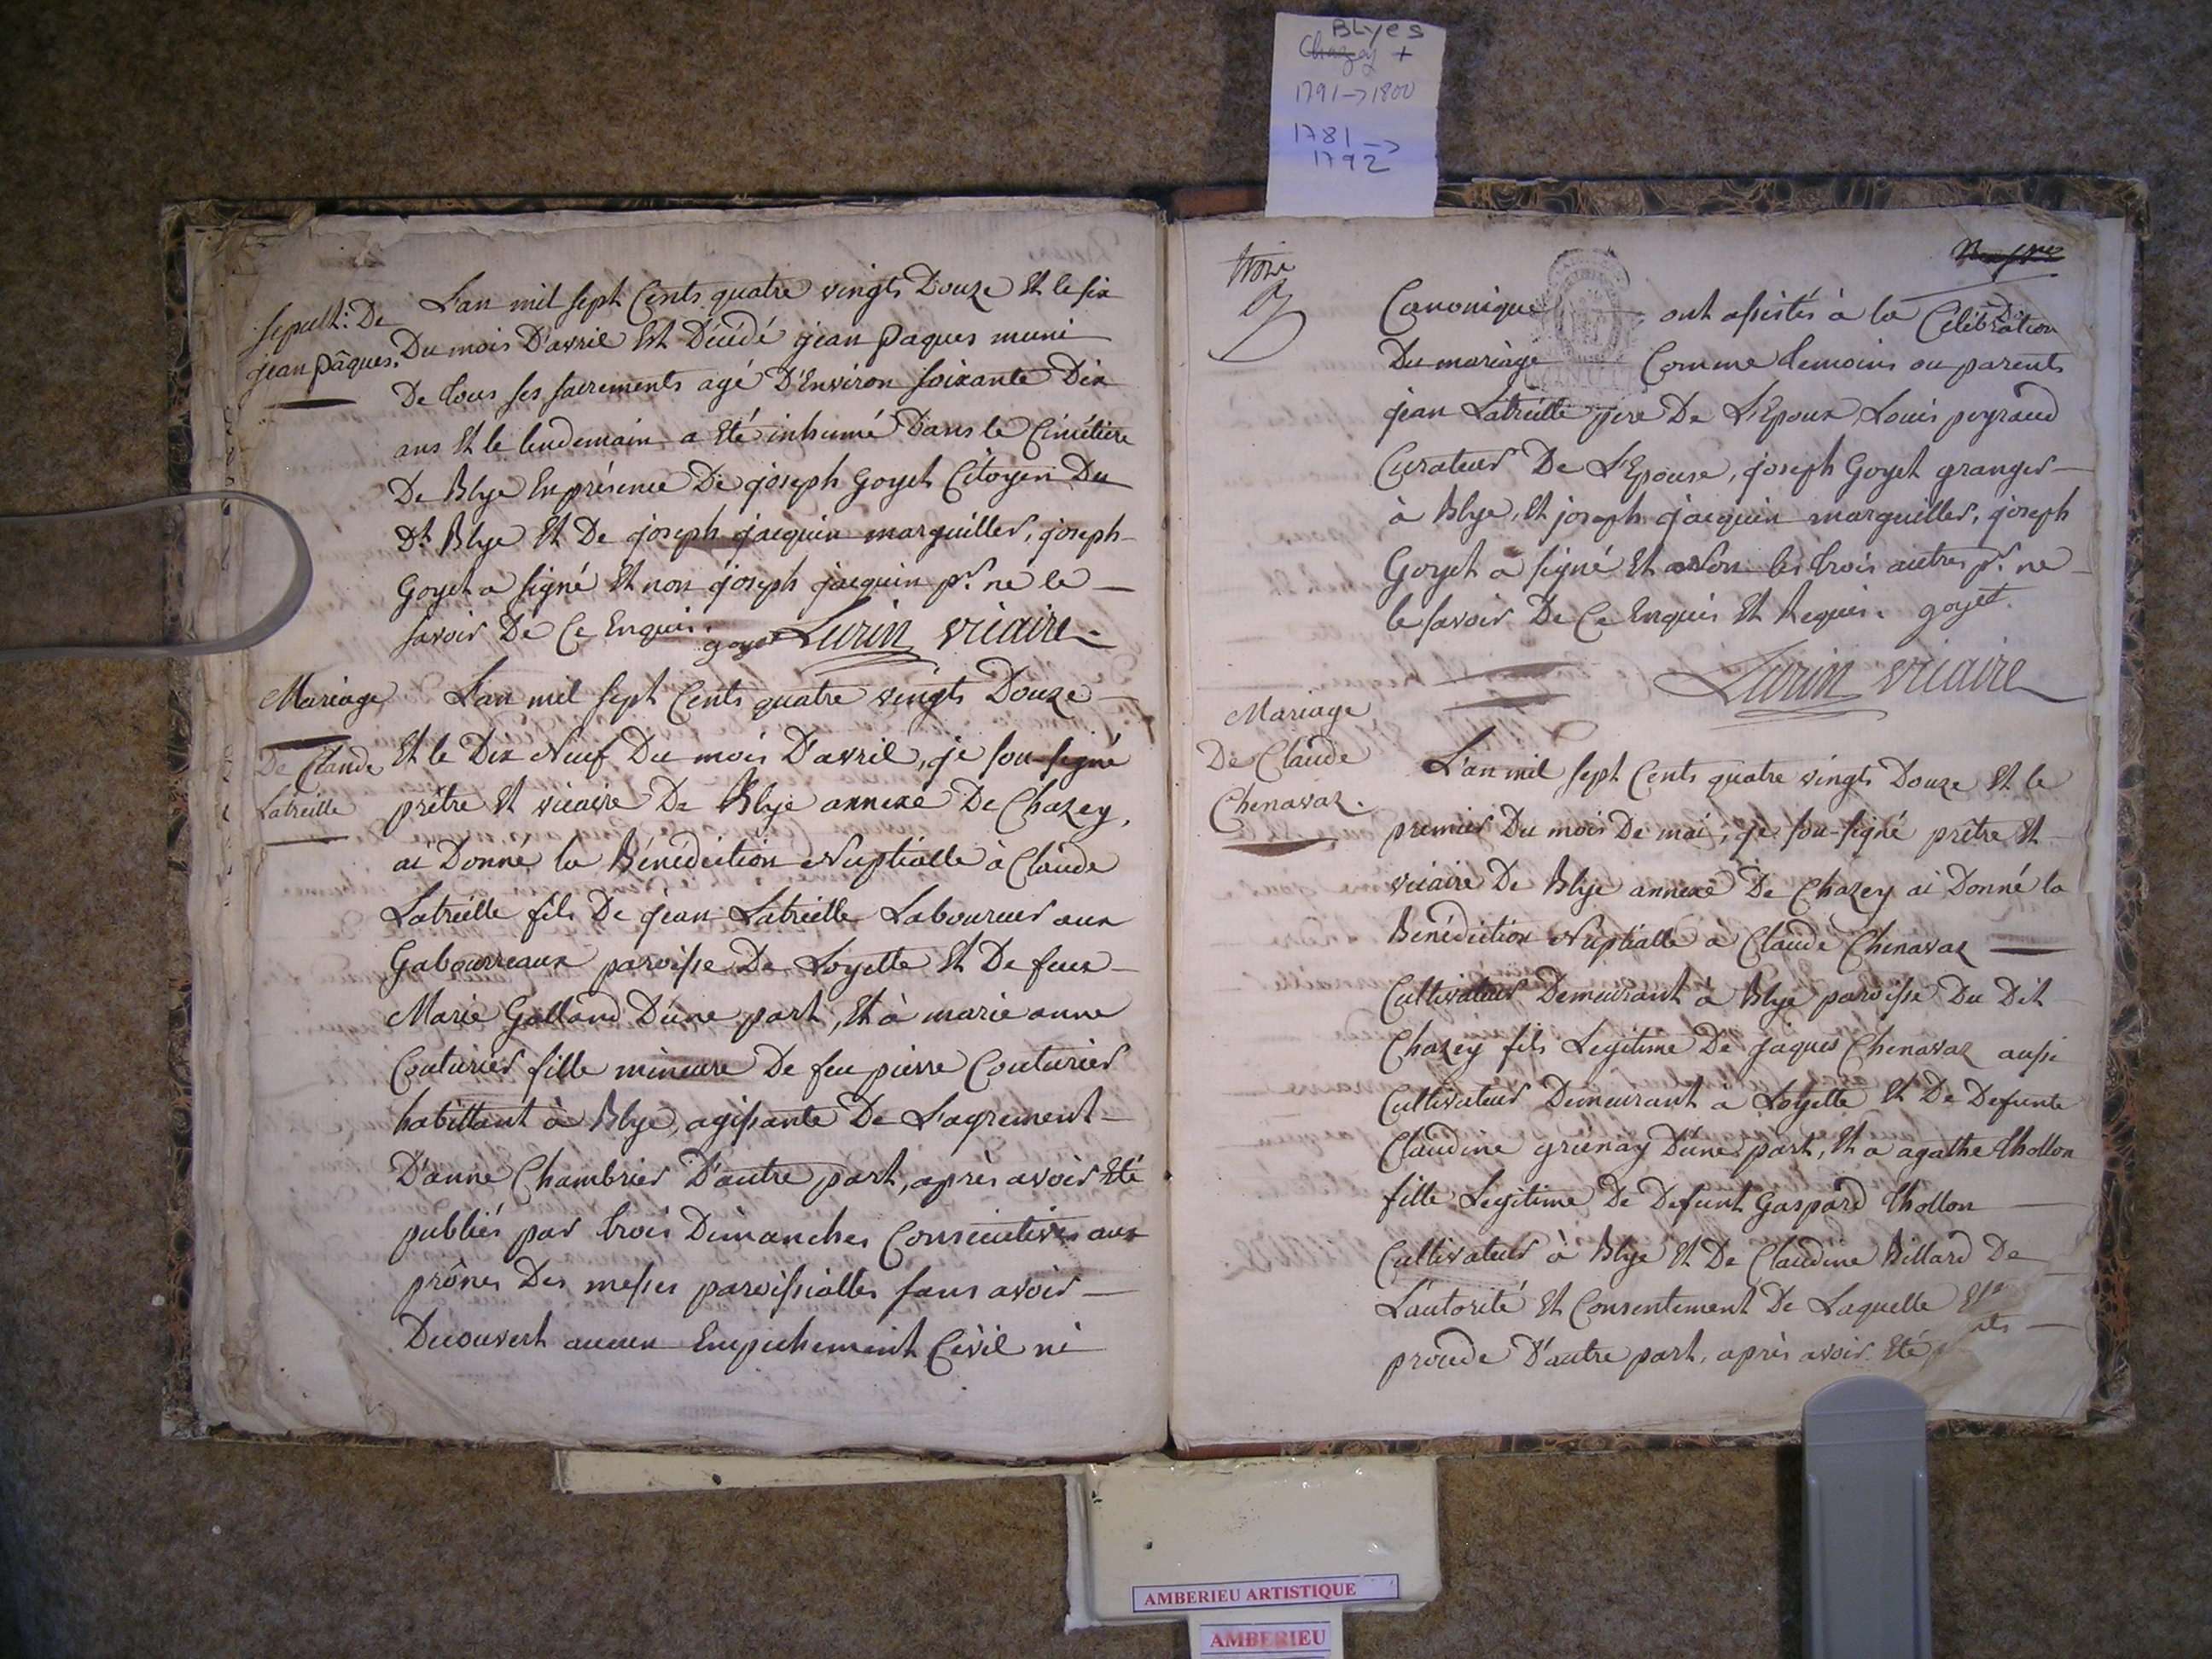 BLyes
Chazey +
1791 -> 1800
1781 ->
1792
Sepult: De
jean pâques.
L'an mil sept Cents quatre vingts Douze Et le six
Du mois D'avril Est Décédé jean paques muni
De tous ses sacrements agé D'Environ soixante Dix
ans Et le lendemain a Eté inhumé Dans le Cimétière
De Blye En présence De joseph Goyet Citoyen Du
Dt. Blye Et De joseph jacquin marguiller, joseph
Goyet a signé Et non joseph jacquin pr. ne le
savoir De Ce Enquis.
goyet Lurin vicaire
Mariage
De Claude
Latreille
L'an mil sept Cents quatre vingts Douze
Et le Dix Neuf Du mois D'avril, je sou-signé
prêtre Et vicaire De Blye annexe De Chazey,
ai Donné la Bénédiction Nuptialle à Claude
Latreille fils De jean Latreille Laboureur aux
Gabourreaux paroisse De Loyette Et De feue
Marie Galland D'une part, Et à marie anne
Couturier fille mineure De feu pierre Couturier
habittant à Blye, agissante De L'agrement
D'anne Chambrier D'autre part, après avoir Eté
publiés par trois Dimanches Consécutives aux
prônes Des messes paroissialles sans avoir
Découvert aucun Empechement Civil ni
Canonique ont assistés à la Célébration
Du mariage Comme temoins ou parents
jean Latreille pere De L'Epoux, Louis peyraud
Curateur De L'Epouse, joseph Goyet granger
à Blye, Et joseph jacquin marguiller, joseph
Goyet a signé Et Non les trois autres pr. ne
le savoir De Ce Enquis Et Requis. goyet.
Lurin vicaire
Mariage
De Claude
Chenavaz.
L'an mil sept Cents quatre vingts Douze Et le
premier Du mois De mai, je sou-signé prêtre Et
vicaire De Blye annexe De Chazey ai Donné la
Bénédiction Nuptialle à Claude Chenavaz
Cultivateur Demeurant à Blye paroisse Du Dit
Chazey fils Legitime De jaques Chenavaz aussi
Cultivateur Demeurant à Loyette Et De Defunte
Claudine grienay D'une part, Et a agathe thollon
fille Legitime De Defunt Gaspard thollon
Cultivateur à Blye Et De Claudine Billard De
L'autorité Et Consentement De Laquelle
procède D'autre part, après avoir Eté
AMBERIEU ARTISTIQUE
AMBERIEU